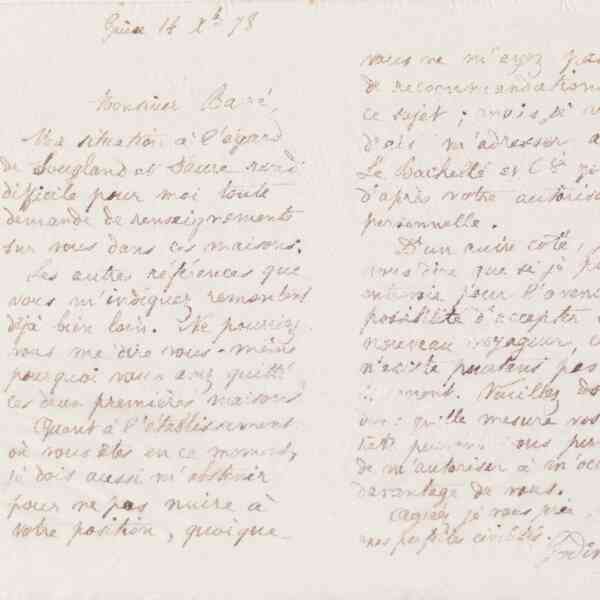 14 Xb 78
Monsieur Baré,
Ma situation à l'égard
de Sougland et Faure rend
difficile pour moi toute
demande de renseignements
sur vous dans ces maisons.
Les autres références que
vous m'indiquez remontent
déjà bien loin. Ne pourriez
vous me dire vous-même
pourquoi vous avez quitté
ces deux premières maisons
Quant à l'établissement
où vous êtes en ce moment,
je dois aussi m'abstenir
pour ne pas nuire à
votre position, quoique
vous ne m'ayez pas
de recommandation
ce sujet ; mais je
d'ais m'adresser a
Le Bachellé et Cie
d'après votre autoris
personnelle.
D'un autre côté,
vous dire que si je
entrevois pour l'avenir
possibilité d'accepter
nouveau voyageur, c
n'existe pourtant pas
Veuillez do
quelle mesure vos
de m'autoriser à m'occ
davantage de vous.
Agréez je vous prie
mes parfaites civilités.